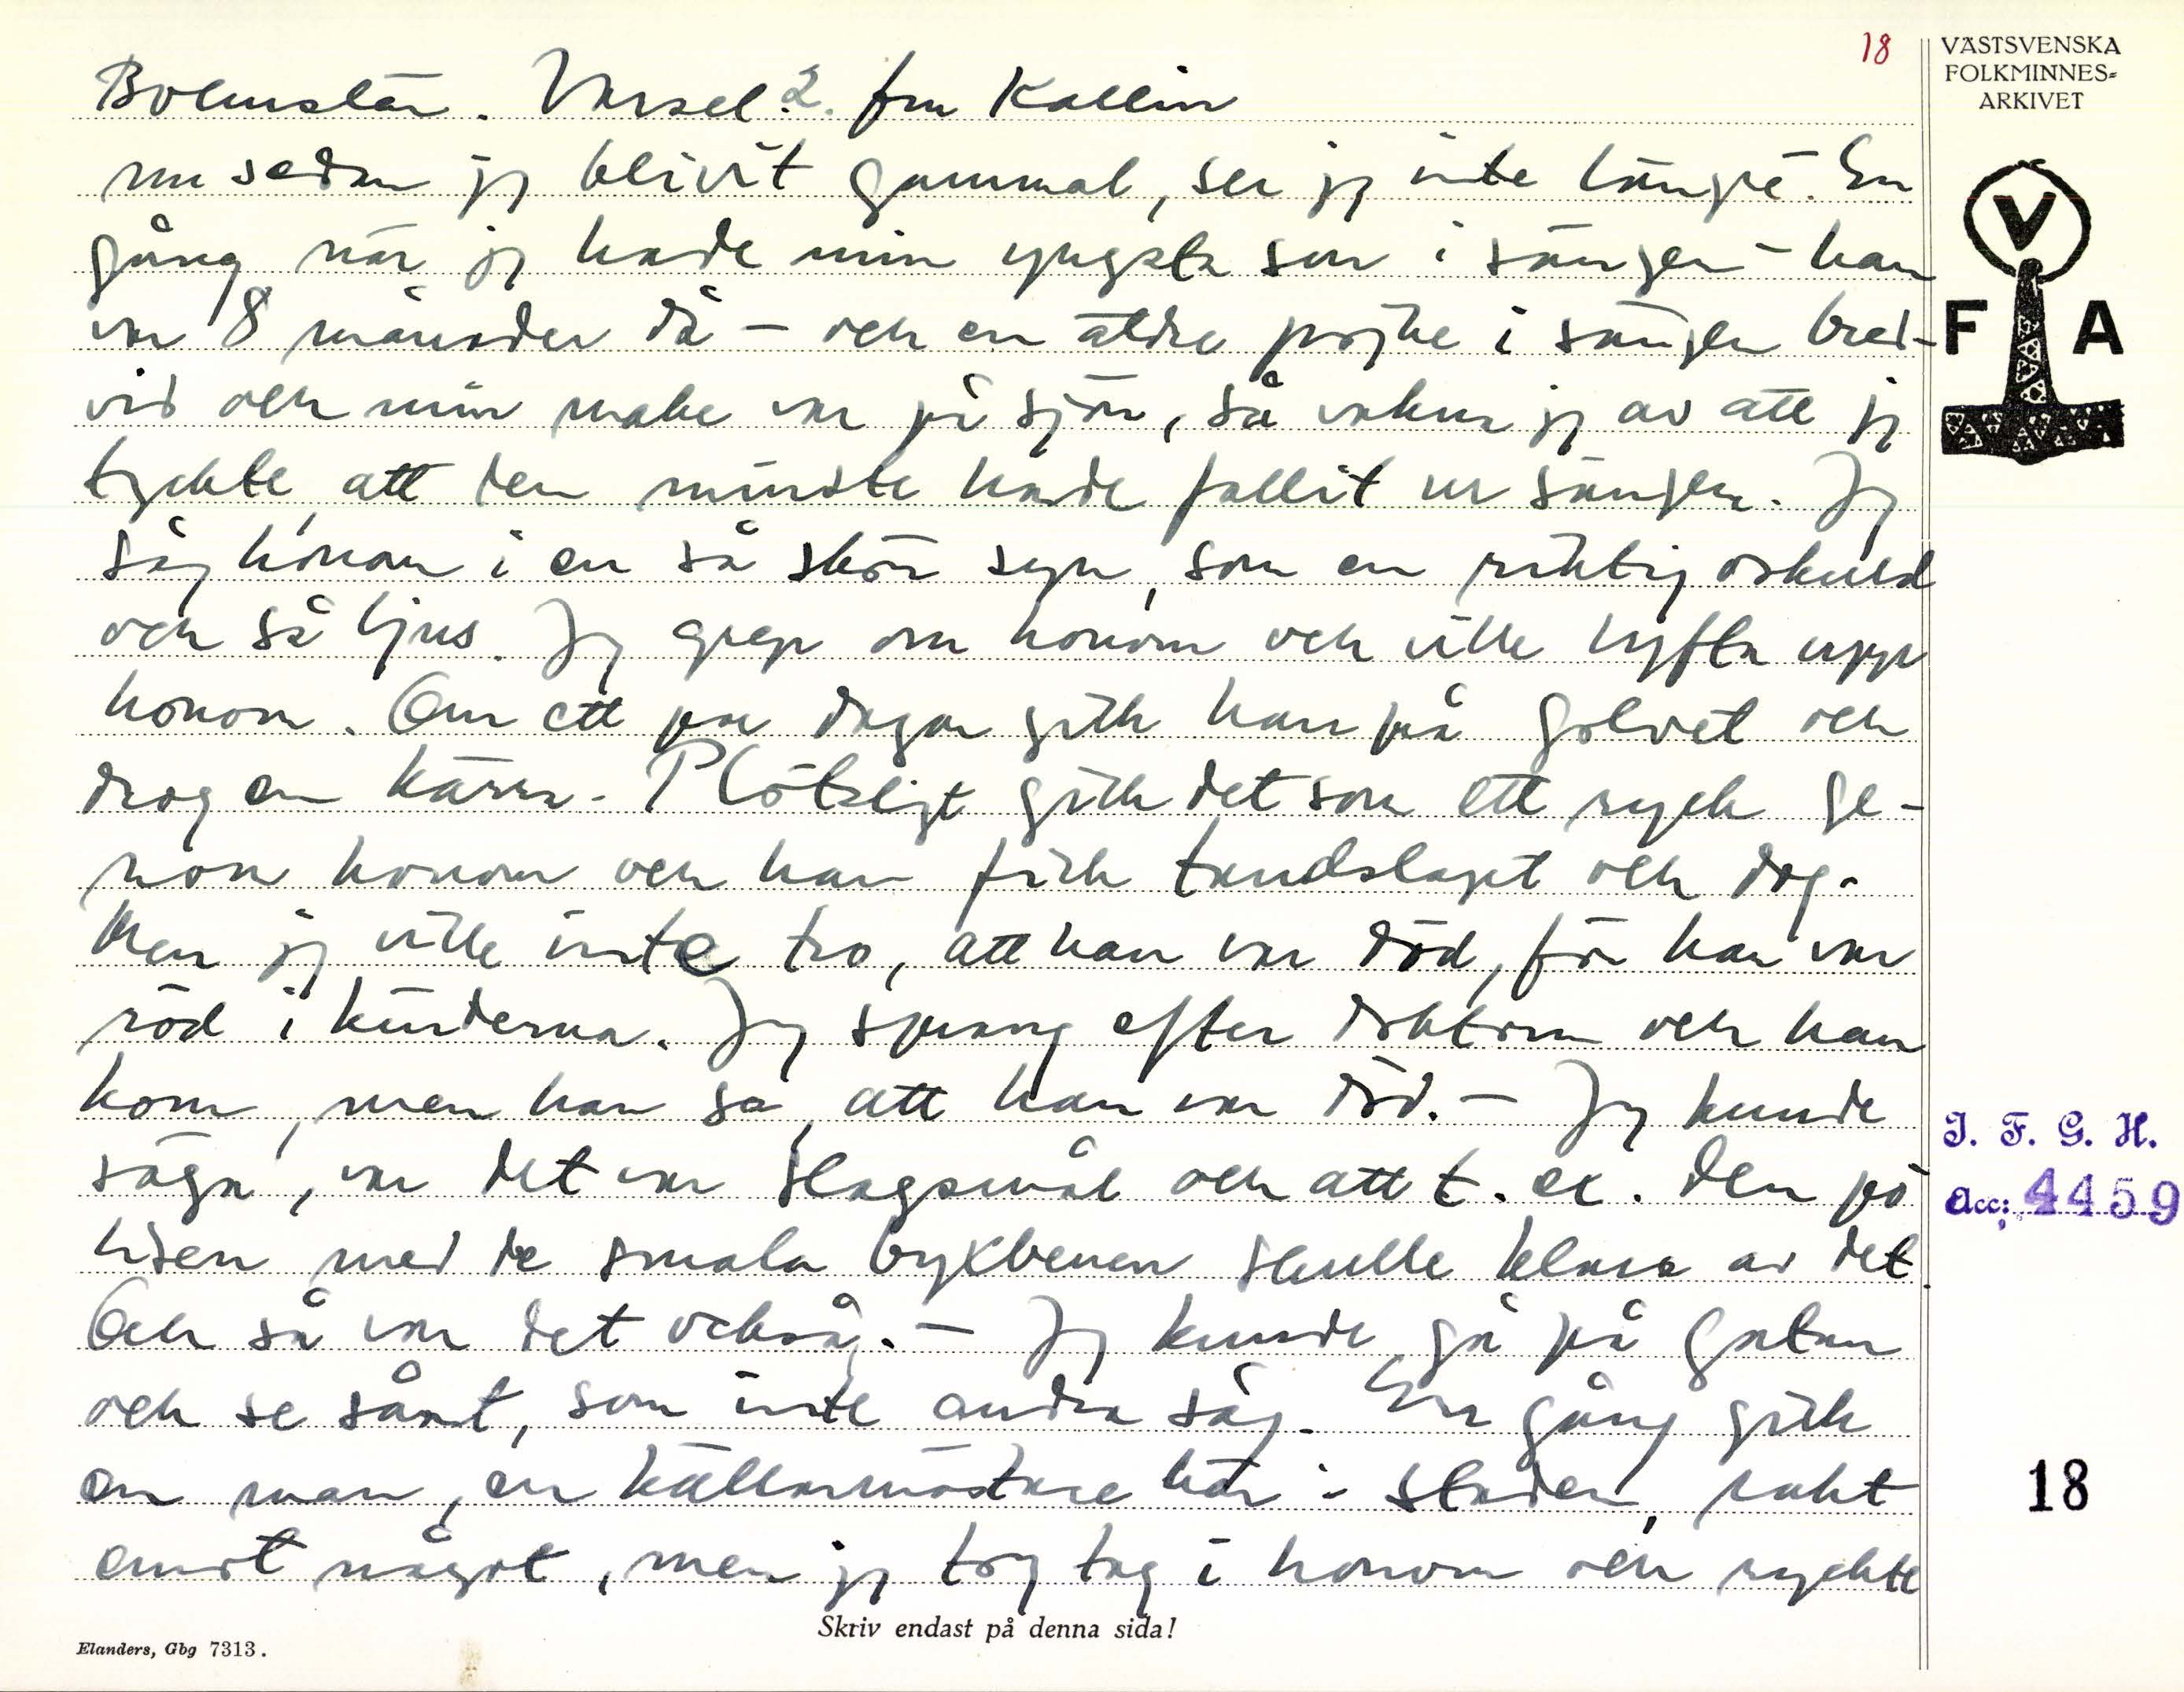 18
VÄSTSVENSKA
FOLKMINNES=
ARKIVET
Bohuslän. Varsel. 2. fru Kallin
nu sedan jag blivit gammal, ser jag inte längre. En
gång när jag hade min yngsta son i sängen - han
var 8 månader då - och en äldre pojke i sängen bred-
vid och min make var på sjön, så vaknar jag av att jag
tyckte, att den minste hade fallit ur sängen. Jag
såg honom i en så skön syn, som en riktig oskuld
och så ljus. Jag grep om honom och ville lyfta upp
honom. Om ett par dagar gick han på golvet och
drog en kärra. Plötsligt gick det som ett ryck ge-
nom honom och han fick tandslaget och dog.
Men jag ville inte tro, att han var död, för han var
röd i kinderna. Jag sprang efter doktorn och han
kom, men han sa, att han var död. - Jag kunde
säga, var det var slagsmål och att t. ex. den på
liden med de smala byxbenen skulle klara av det.
Och så var det också. - Jag kunde gå på gatan
och se sånt, som inte andra såg. En gång gick
en man, en källarmästare här i staden, rakt
emot något, men jag tog tag i honom och ryckte
V
F A
I. F. G. H.
Acc: 4459
18
Skriv endast på denna sida!
Elanders, Gbg 7313.